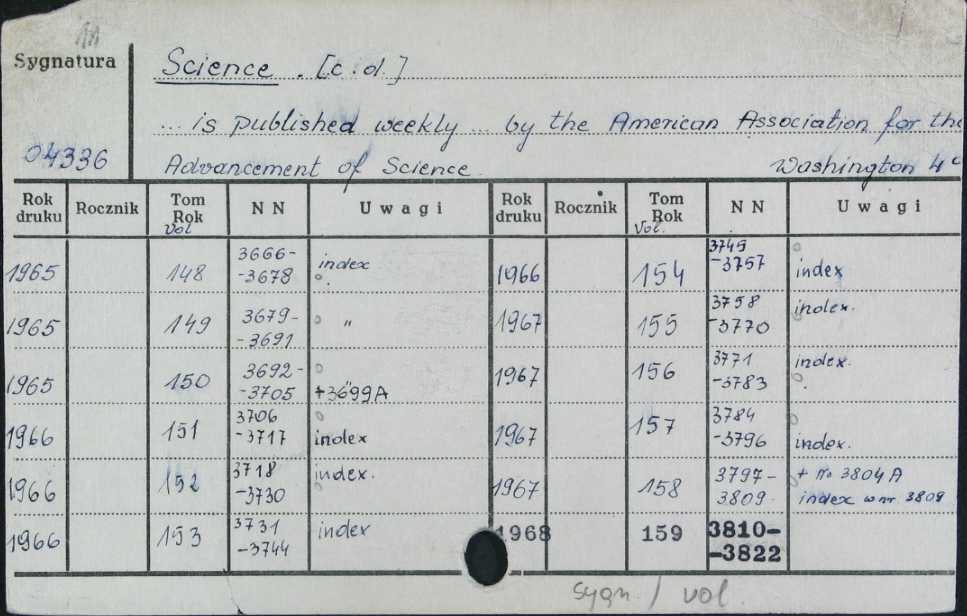 11
Sygnatura
Science . [c.d.]
... is published weekly ... by the American Association for the
04336
Advancement of Science Washington 4°
Rok druku Rocznik Tom Rok Vol NN Uwagi Rok druku Rocznik Tom Rok Vol. NN Uwagi
1965 148 3666-
-3678 index
1966 154 3745
-3757 index
1965 149 3679-
-3691 "
1967 155 3758
-3770 index.
1965 150 3692-
-3705 " +3699A
1967 156 3771
-3783 index.
1966 151 3706
-3717 index
1967 157 3784
-3796 index.
1966 152 3718
-3730 index.
1967 158 3797-
3809 + no 3804A
index w nr 3809
1966 153 3731
-3744 index
1968 159 3810-
-3822
sygn / vol.